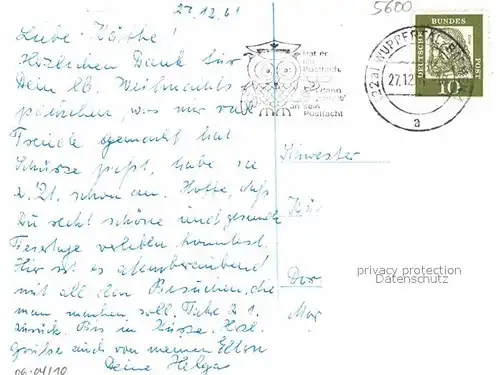 27.12.61
5600
Liebe Käthe!
Herzlichen Dank für
Dein lb. Weihnachts
päckchen, was mir viel
Freude gemacht hat
Schürze paßt, habe sie
z. Zt. schon an. Hoffe, daß
Du recht schöne und gesunde
Feiertage verleben konntest.
Hier ist es atemberaubend
mit all den Besuchen, die
man machen soll. Fahe 2.1.
zurück. Bis in Kürze. Herzl.
Grüße auch von meinen Eltern
Deine Helga
06.04/10
Hat er
ein
Postfach,
dann
an sein
Postfach
(22a) WUPPERTAL-
27.12.
a
DEUTSCHE BUNDES
10
Schwester
Dor
privacy protection
Datenschutz